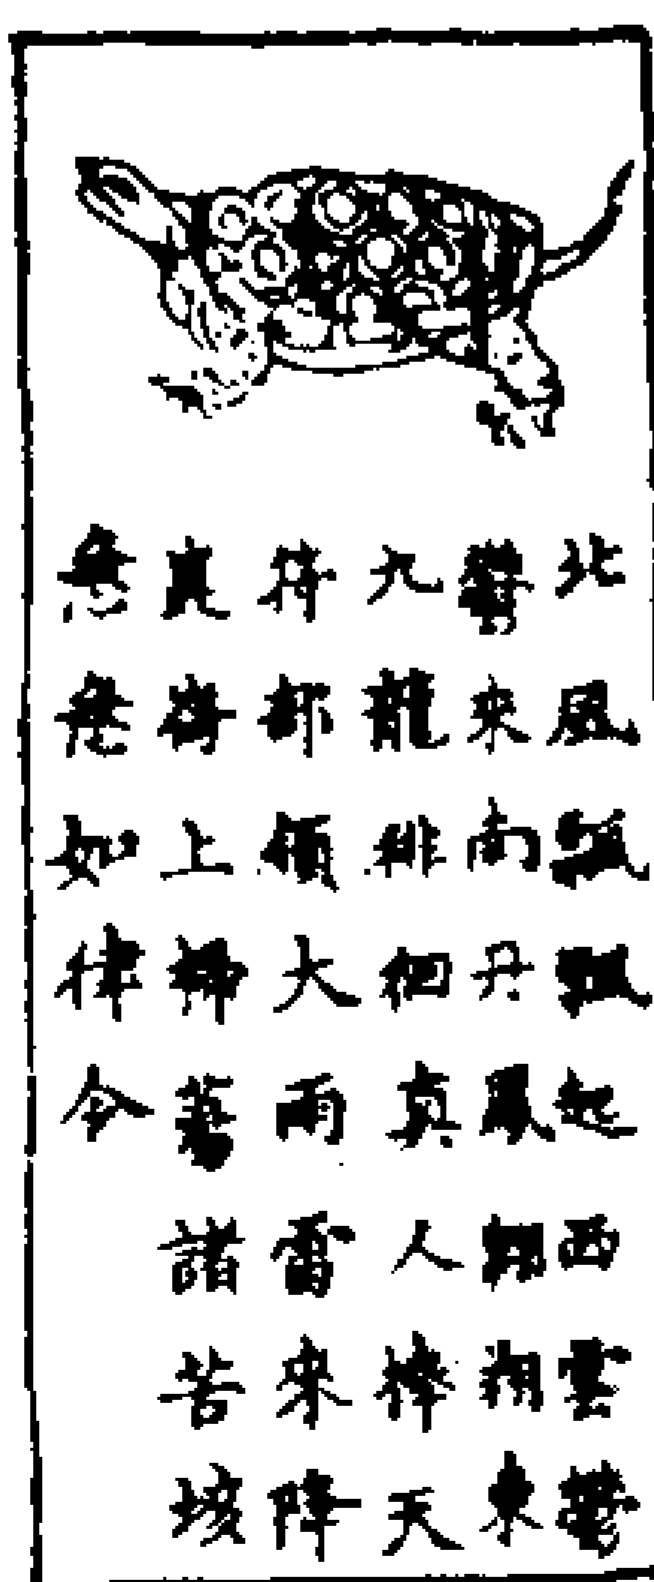 北風飄飄起西雲鬱
鬱來南丹鳳翱翔東
九龍徘徊真人捧天
符部領大雨雷來降
真 上 諸苦
急急如律令